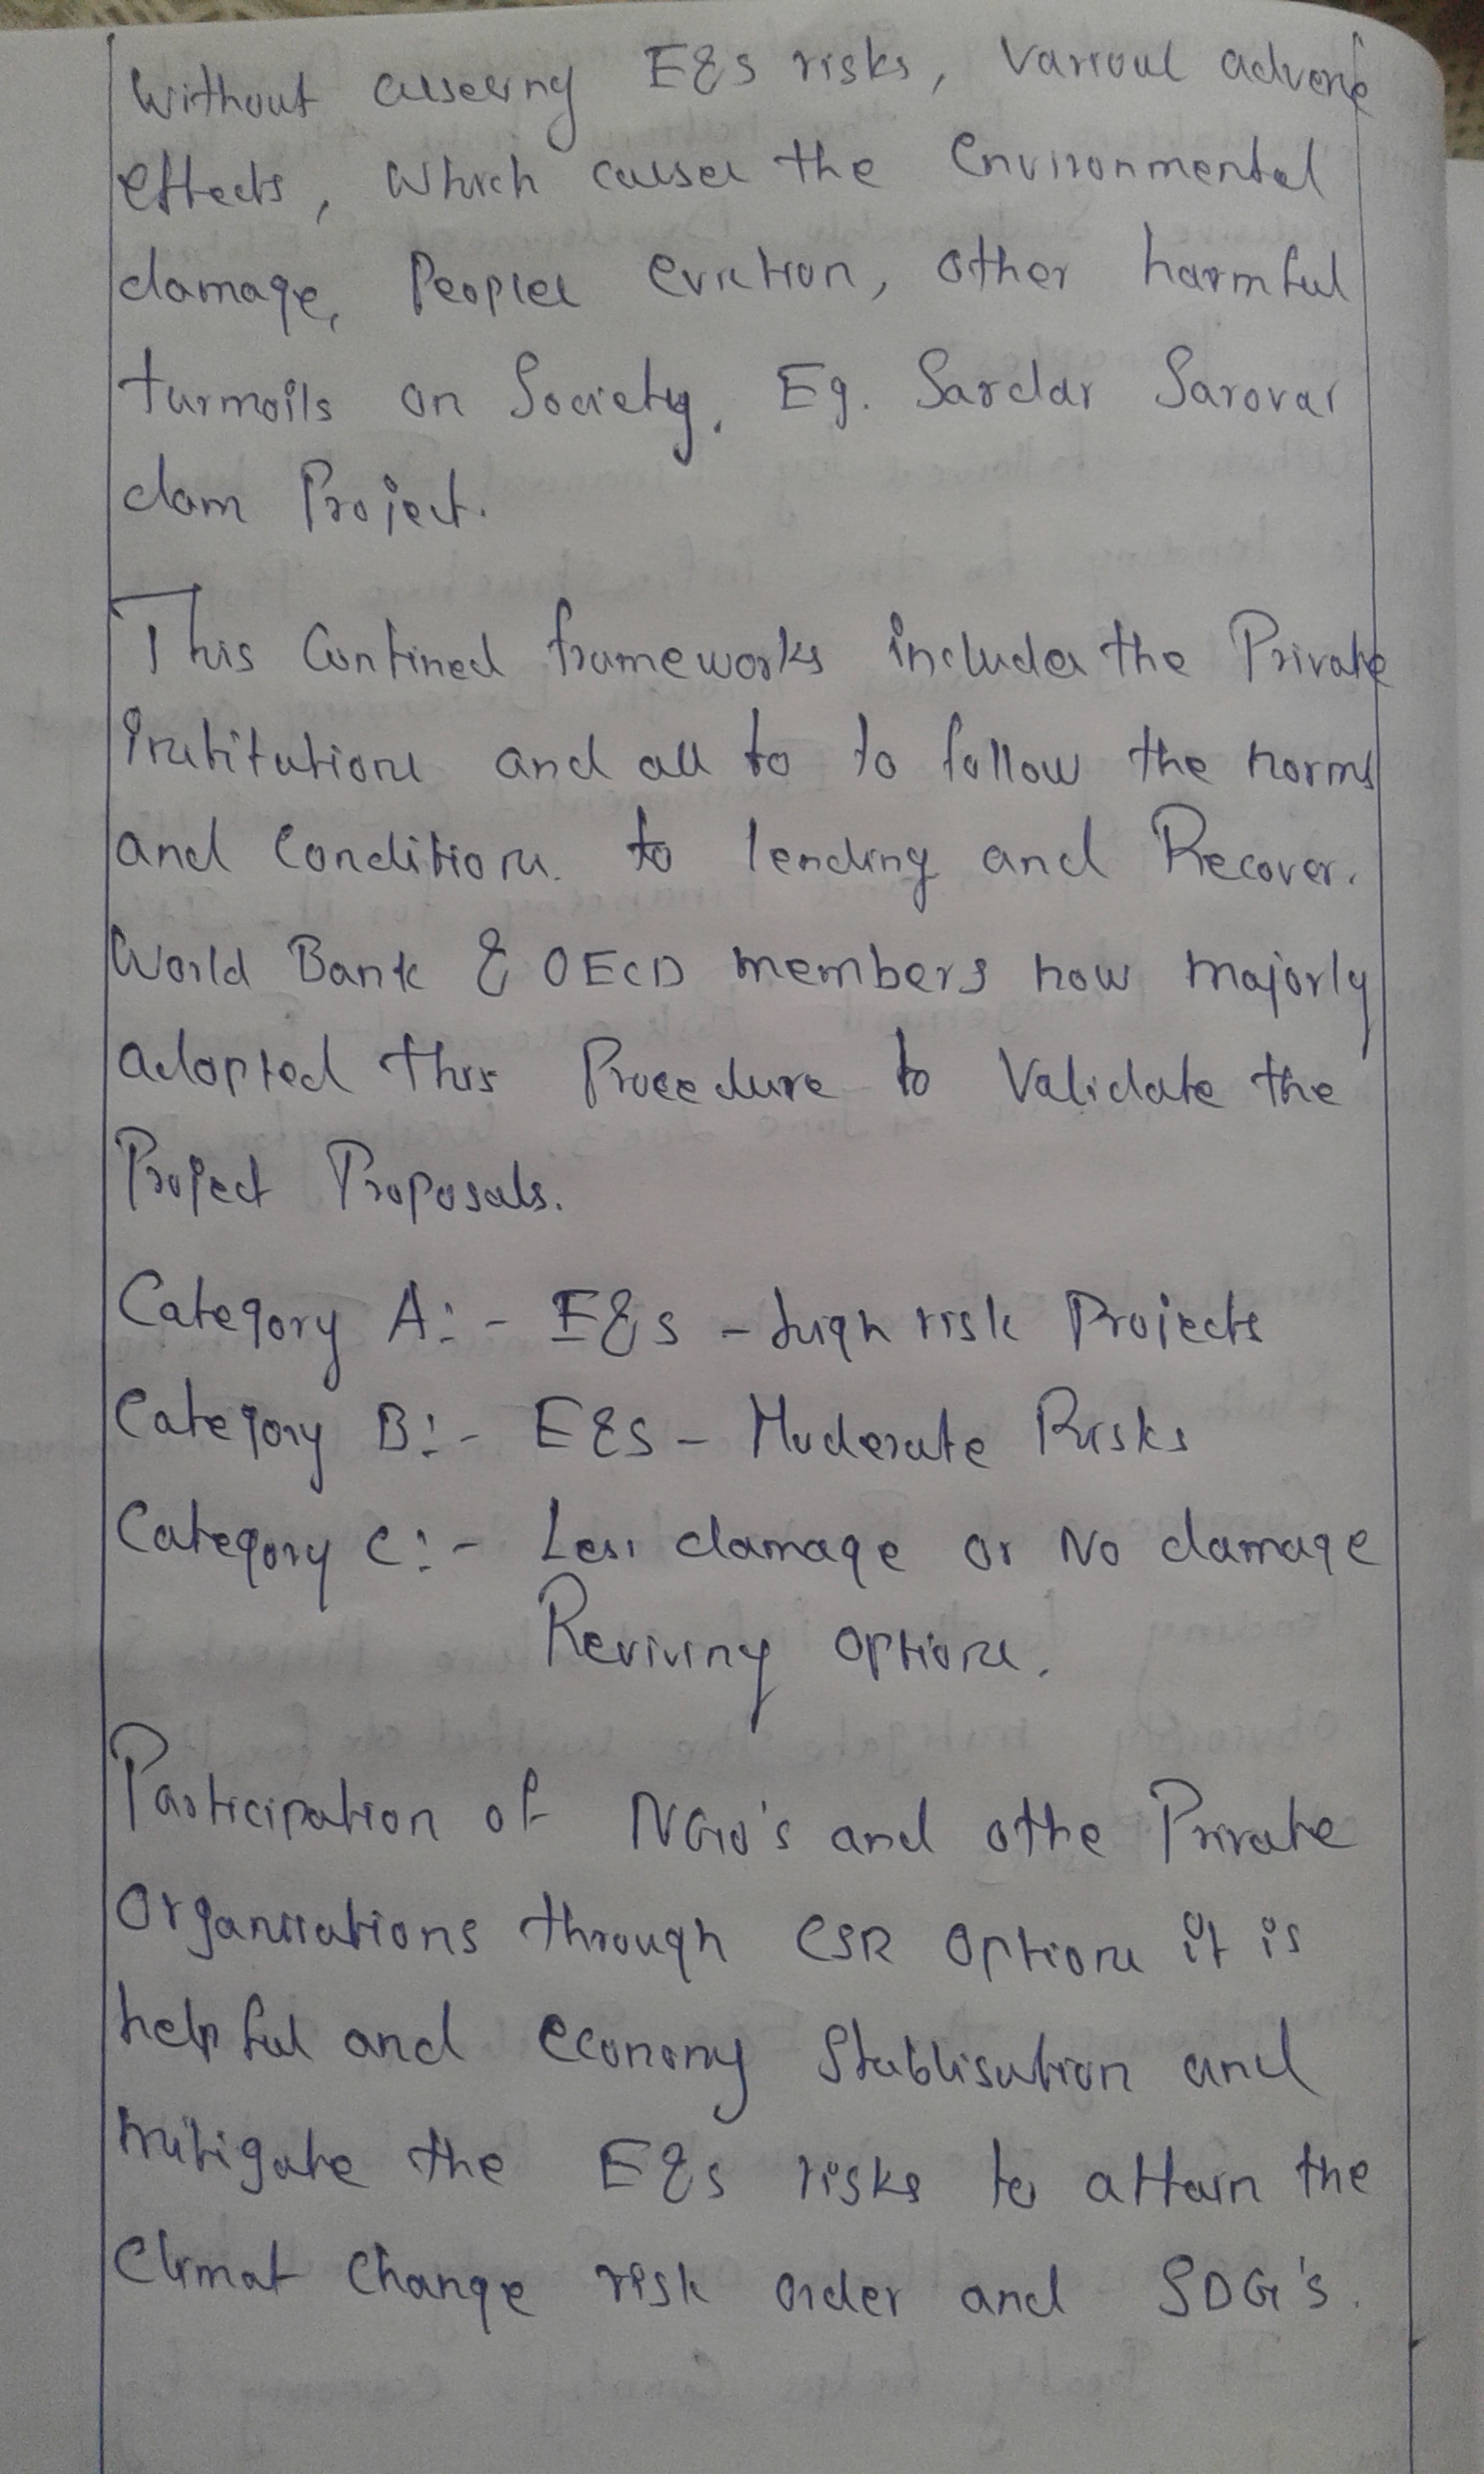 Without assesing E&S risks, Various adverse
effects, which causes the Environmental
damage, Peoples eviction, other harmful
turmoils on Society. Eg. Sardar Sarovar
dam Project.
This Confined frameworks includes the Private
institutions and all to to follow the norms
and Conditions. to lending and Recover.
World Bank & OECD members now majorly
adopted this Procedure to Validate the
Project Proposals.
Category A:- E&S - high risk Projects
Category B:- E&S - Moderate Risks
Category C:- Less damage or No damage
Reviving options.
Participation of NGO's and othe Private
Organisations through CSR options it is
helpful and economy Stablisation and
mitigate the E&S risks to attain the
Climat Change risk order and SDG's.